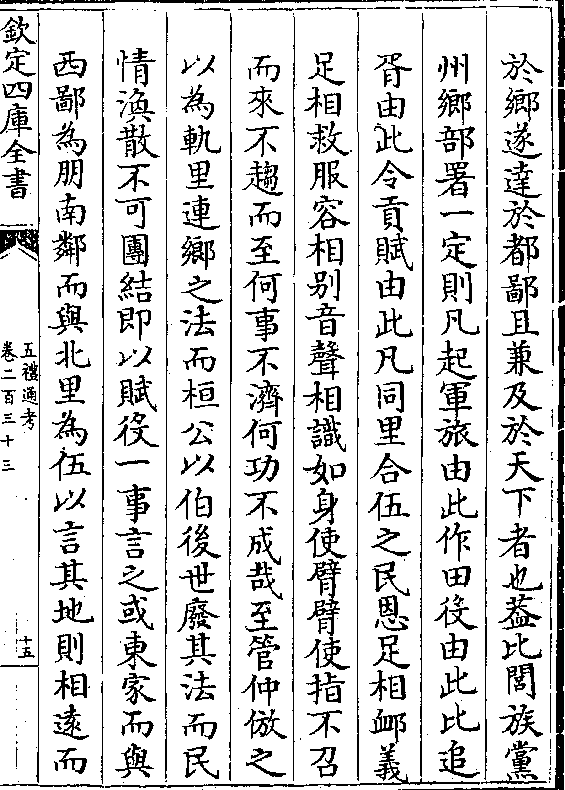 於鄉遂達於都鄙且兼及於天下者也葢比閭族黨
州鄉部署一定則凡起軍旅由此作田役由此比追
胥由此令貢賦由此凡同里合伍之民恩足相䘏義
足相救服容相别音聲相識如身使臂臂使指不召
而來不趨而至何事不濟何功不成哉至管仲倣之
以為軌里連鄉之法而桓公以伯後世廢其法而民
情渙散不可團結即以賦役一事言之或東家而與
西鄙為朋南鄰而與北里為伍以言其地則相遠而
欽定四庫全書
五禮通考
卷二百三十三
十五